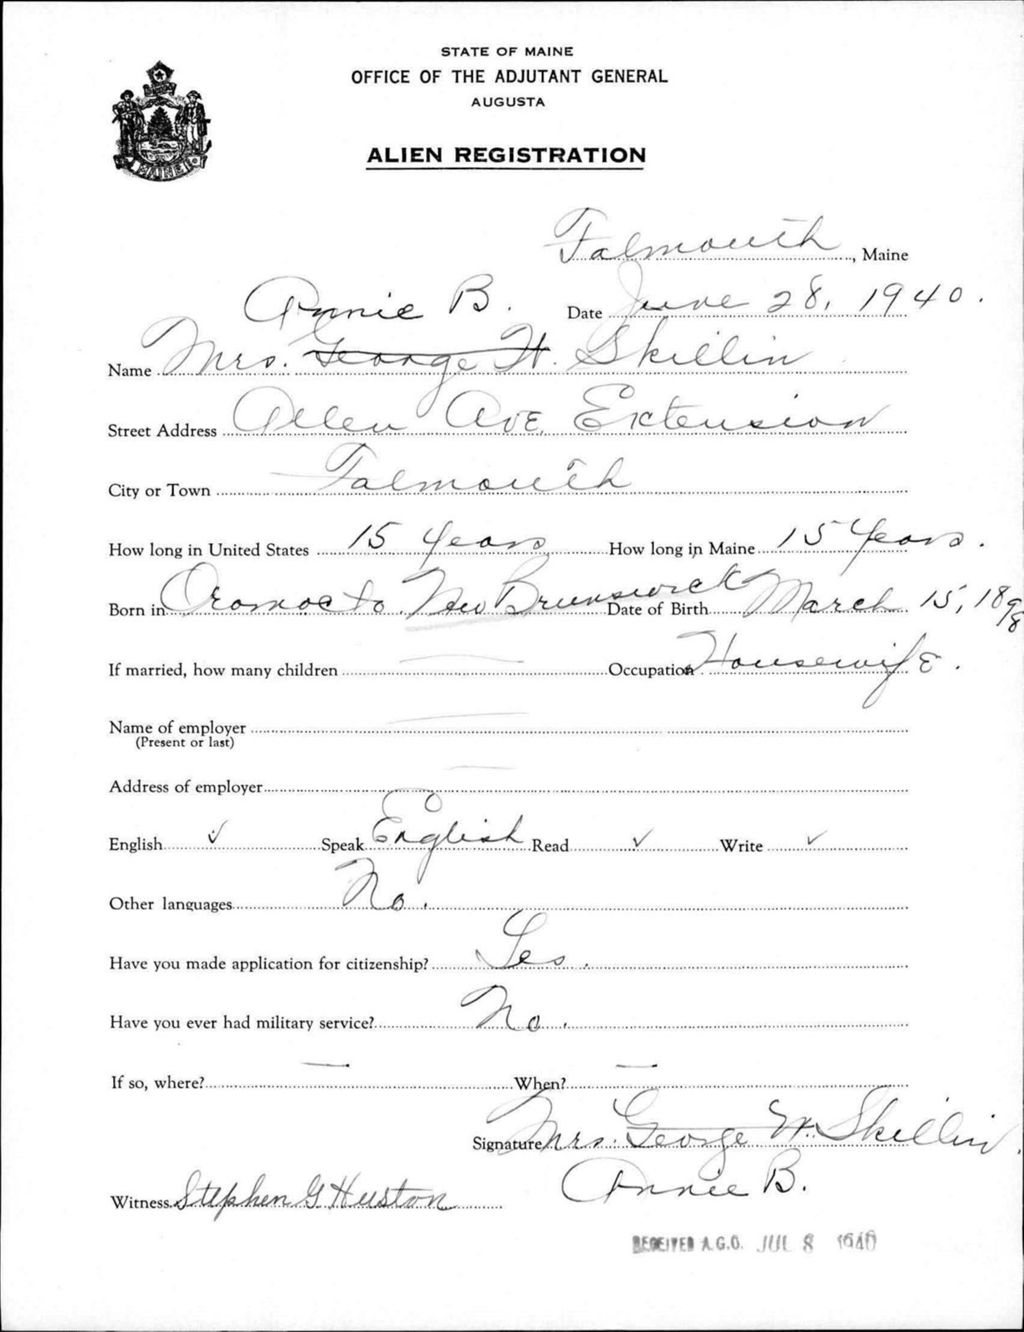 STATE OF MAINE
OFFICE OF THE ADJUTANT GENERAL
AUGUSTA
MAINE
ALIEN REGISTRATION
Falmouth, Maine
Annie B. Date June 28, 1940.
Name Mrs. George W. Skillin
Street Address Allen Ave. Extension
City or Town Falmouth
How long in United States 15 Years How long in Maine 15 Years.
Born in Oromocto New Brunswick Date of Birth March 15, 1898
If married, how many children — Occupation Housewife.
Name of employer —
(Present or last)
Address of employer —
English ✓ Speak English Read ✓ Write ✓
Other languages No.
Have you made application for citizenship? Yes.
Have you ever had military service? No.
If so, where? — When? —
Signature Mrs. George W. Skillin.
Annie B.
Witness Stephen G Huston
RECEIVED A.G.O. JUL 8 1940